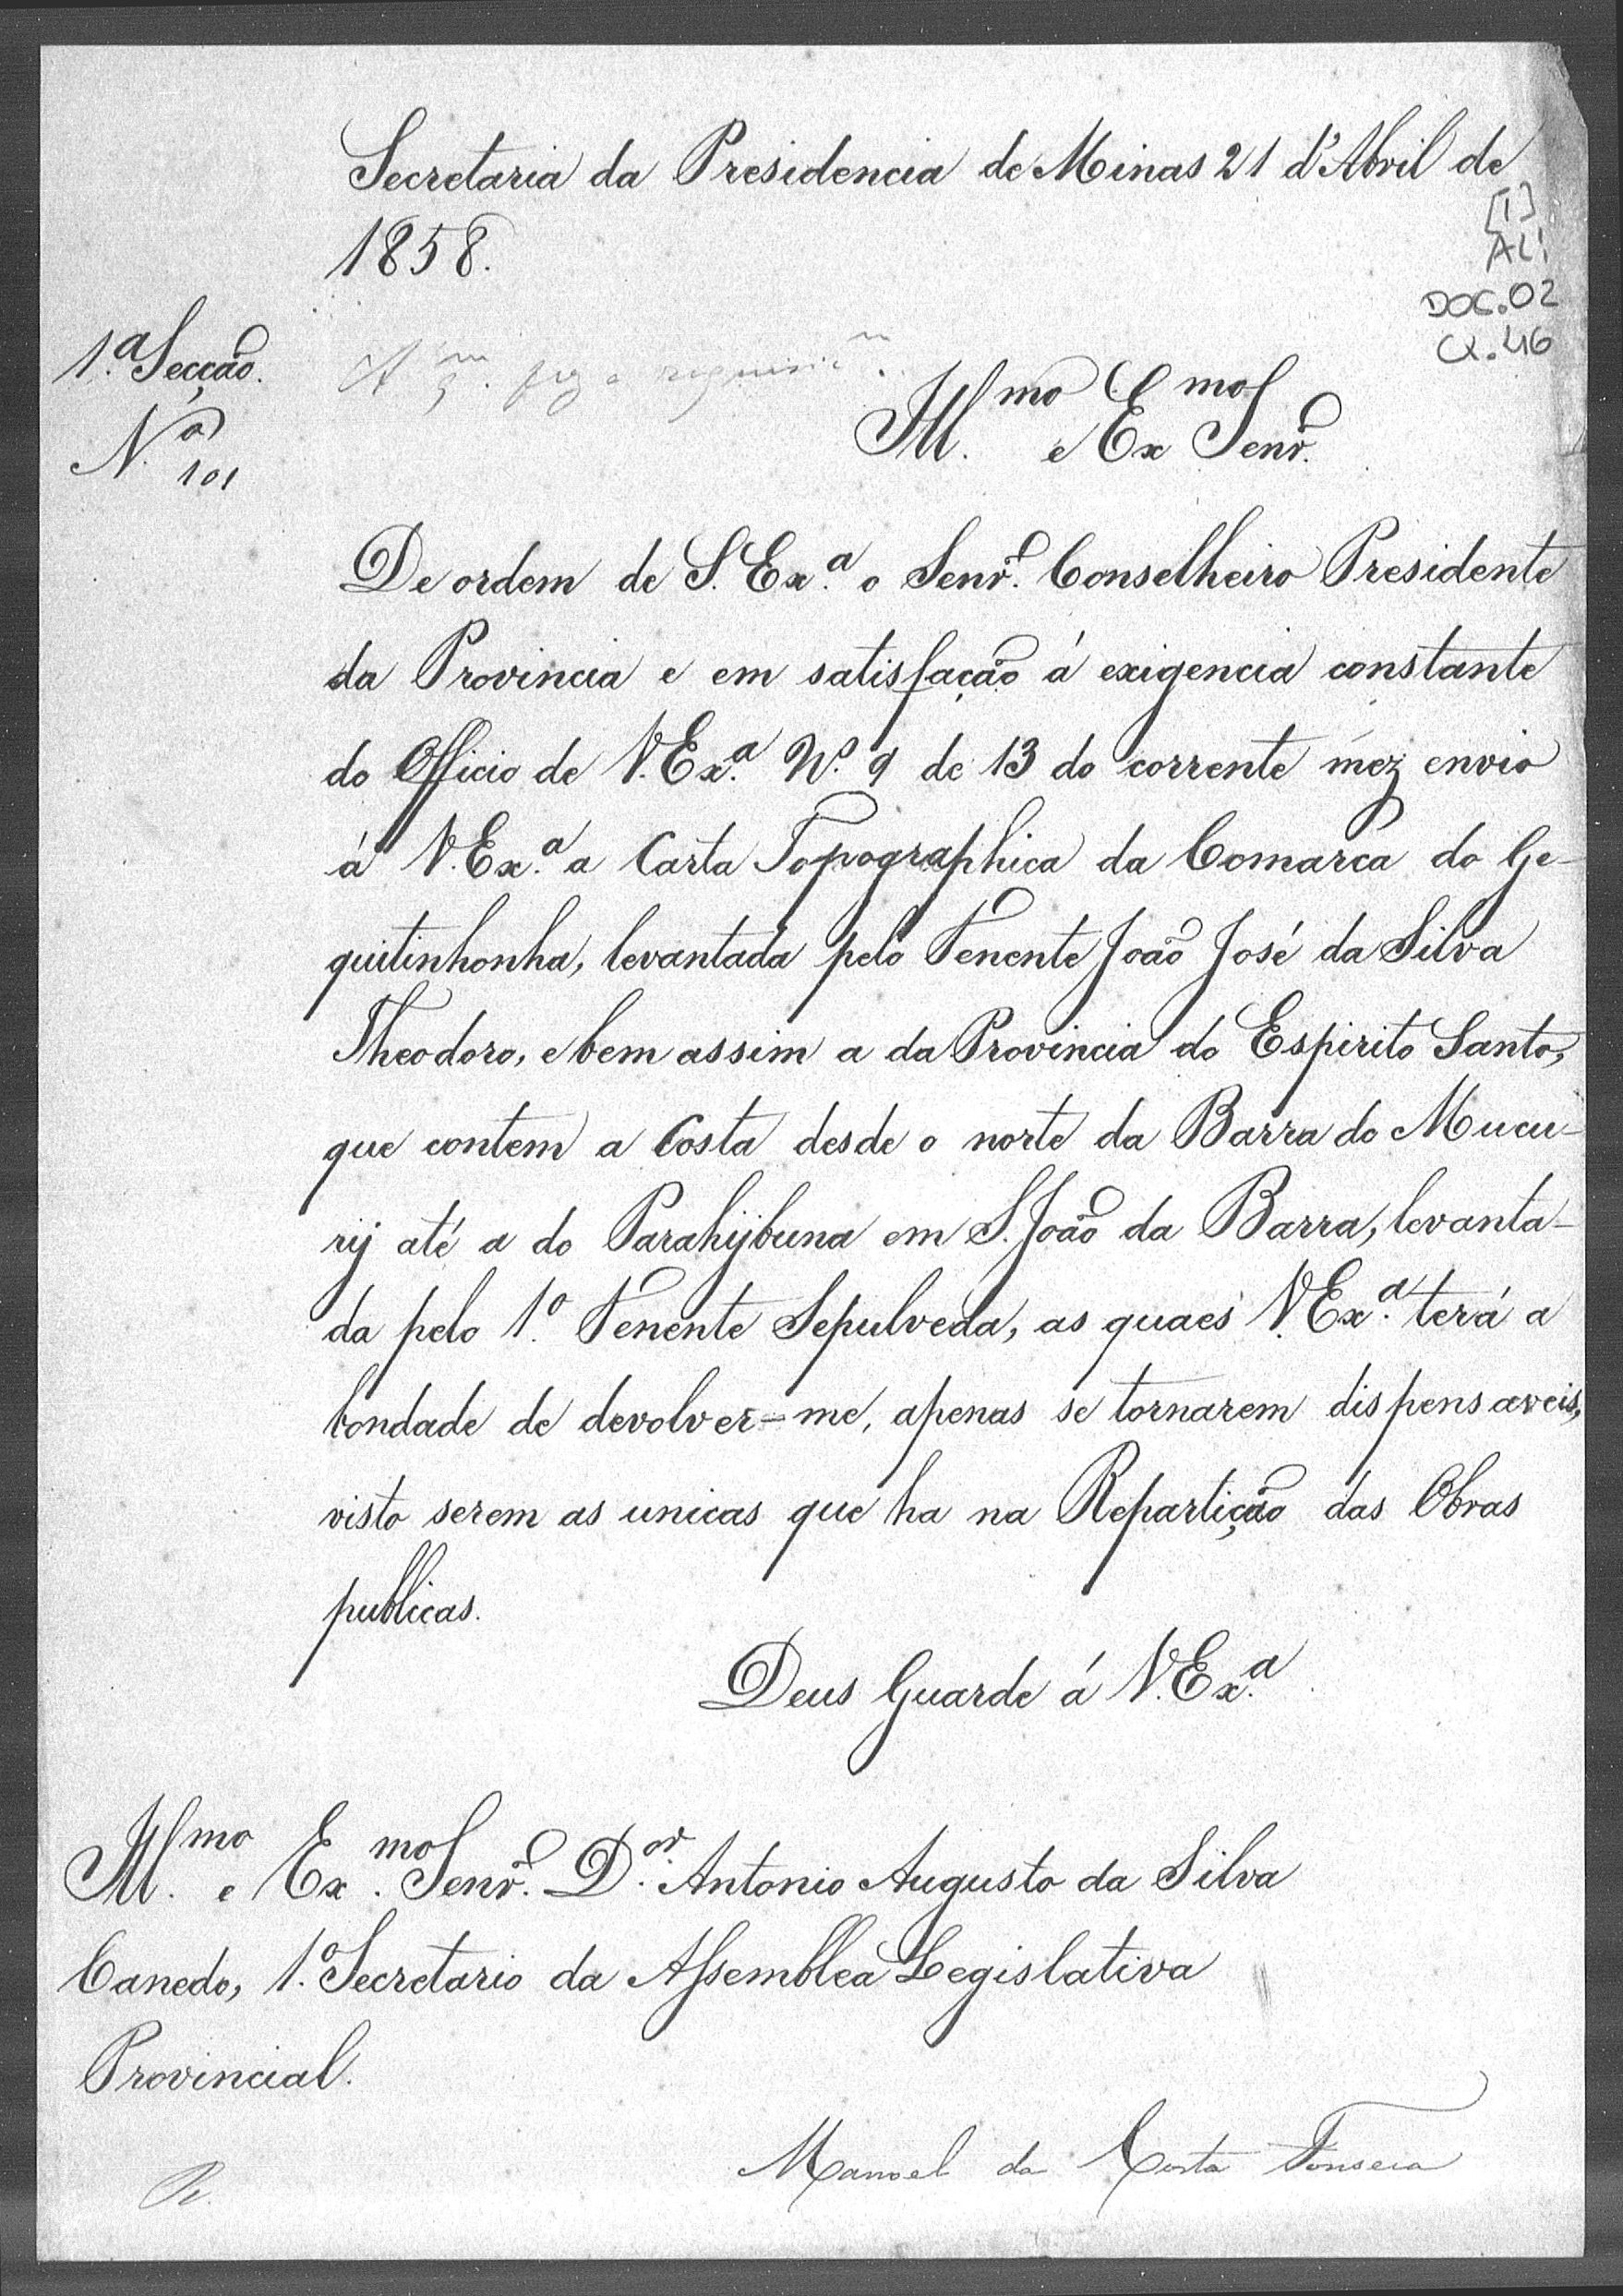 Secretaria da Presidencia de Minas 21 d'Abril de
1858.
[1]
AL1
DOC.02
CX.46
1.ª Secção.
N.º 101
A q.m fez a requisiç.m
Ill.mo e Ex.mo Senr.
De ordem de S. Ex.ª o Senr. Conselheiro Presidente
da Provincia e em satisfação á exigencia constante
do Officio de V. Ex.ª N.º 9 de 13 do corrente mez envio
á V. Ex.ª a Carta Topographica da Comarca do Ge-
quitinhonha, levantada pelo Tenente João José da Silva
Theodoro, e bem assim a da Provincia do Espirito Santo,
que contem a Costa desde o norte da Barra do Mucu-
rij até a do Parahijbuna em S. João da Barra, levanta-
da pelo 1.º Tenente Sepulveda, as quaes V. Ex.ª terá a
bondade de devolver-me, apenas se tornarem dispensaveis,
visto serem as unicas que ha na Repartição das Obras
publicas.
Deus Guarde á V. Ex.ª
Ill.mo e Ex.mo Senr. D.or Antonio Augusto da Silva
Canedo, 1.º Secretario da Assemblea Legislativa
Provincial.
Manoel da Costa Fonseca